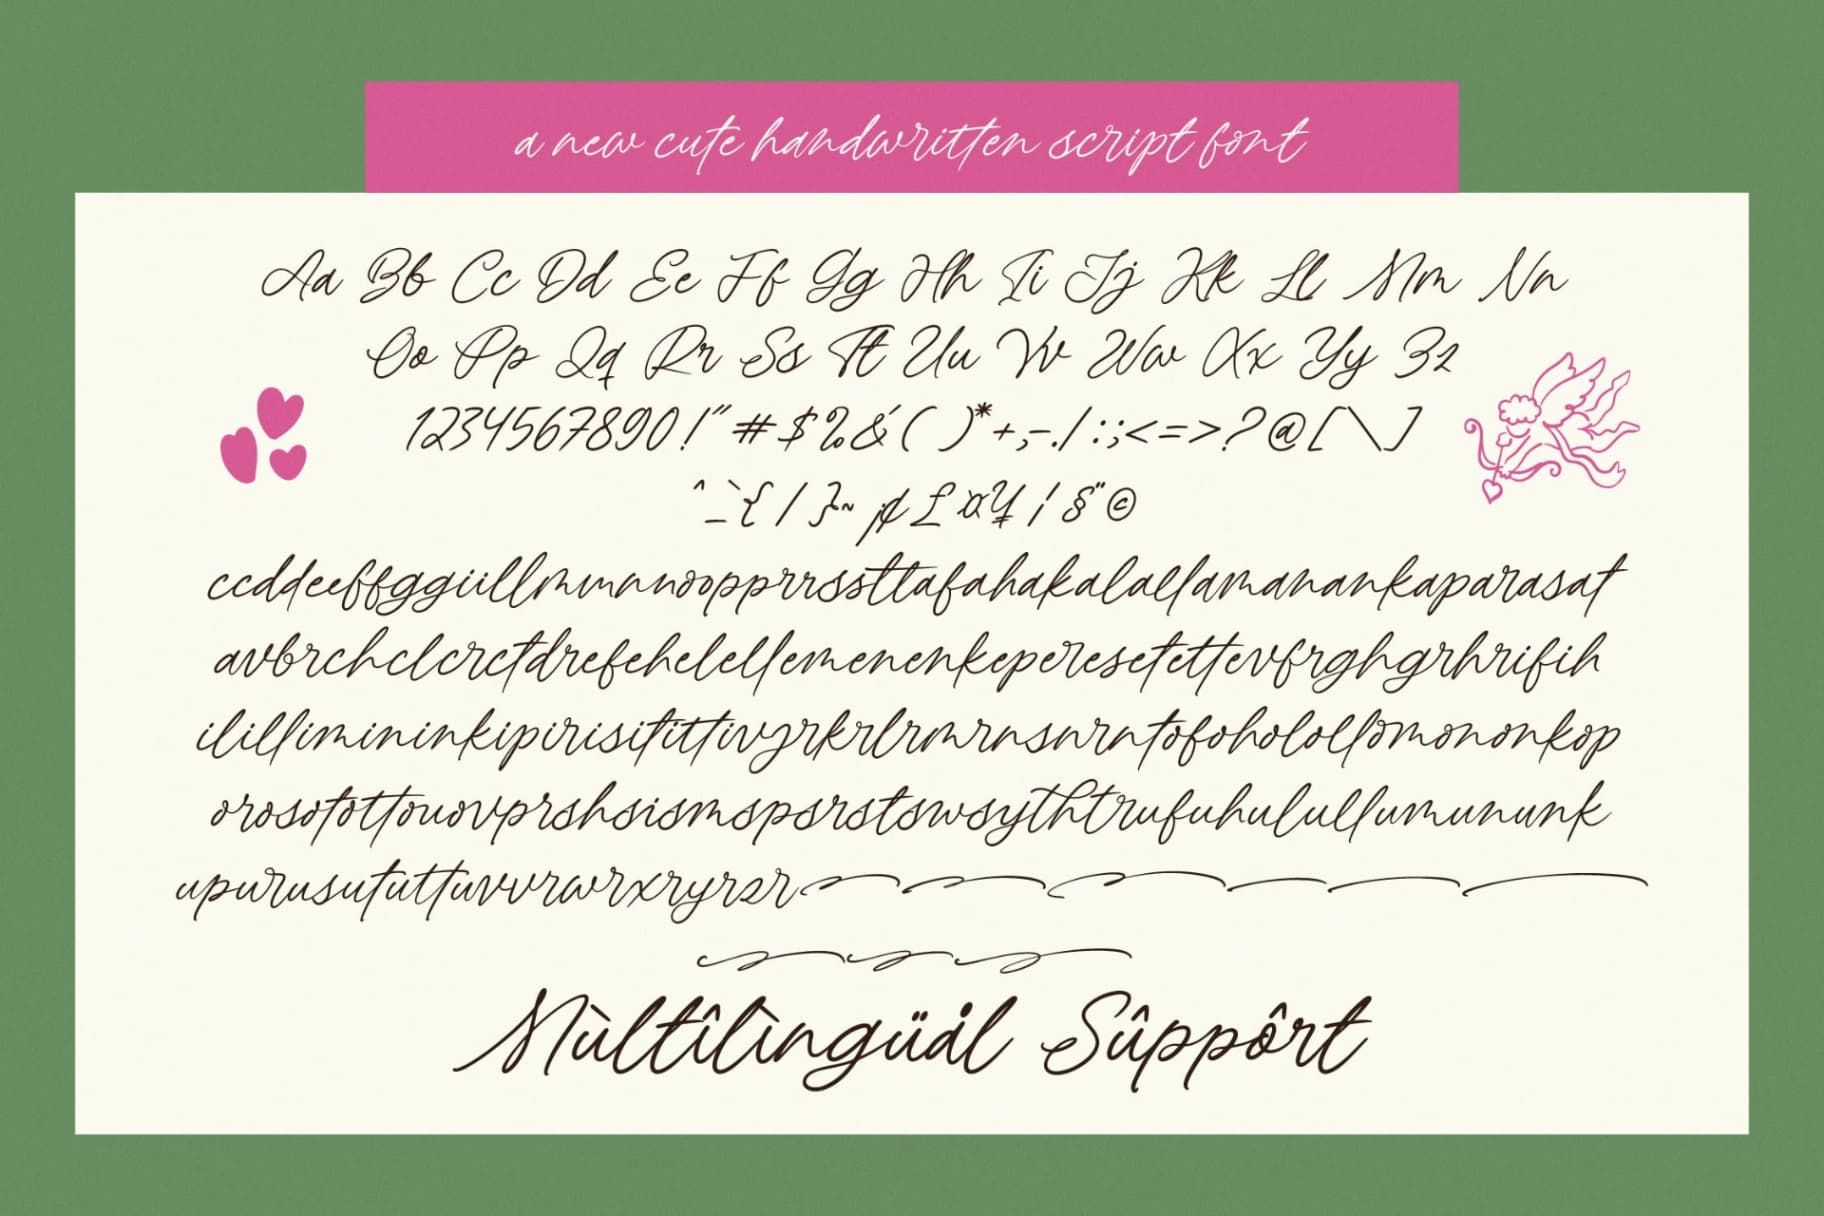 a new cute handwritten script font
Aa Bb Cc Dd Ee Ff Gg Hh Ii Jj Kk Ll Mm Nn
Oo Pp Qq Rr Ss Tt Uu Vv Ww Xx Yy Zz
1234567890!"#$%&'( )*+,-./:;<=>?@[\]
^_`{|}~¡¢£¤¥¦§¨©
ccddeeffggiillmmnnoopprrssttafahakalallamanankaparasat
avbrchclcrctdrefehelellemenenkeperesetettevfrghgrhrifih
ilillimininkipirisitittivjrkrlrmrnsnrntofoholollomononkop
orosotottouovprshsismspsrstswsythtrufuhulullumununk
upurusututtuvvrwrxryrzr
Mùltîlìngüål Sûppôrt